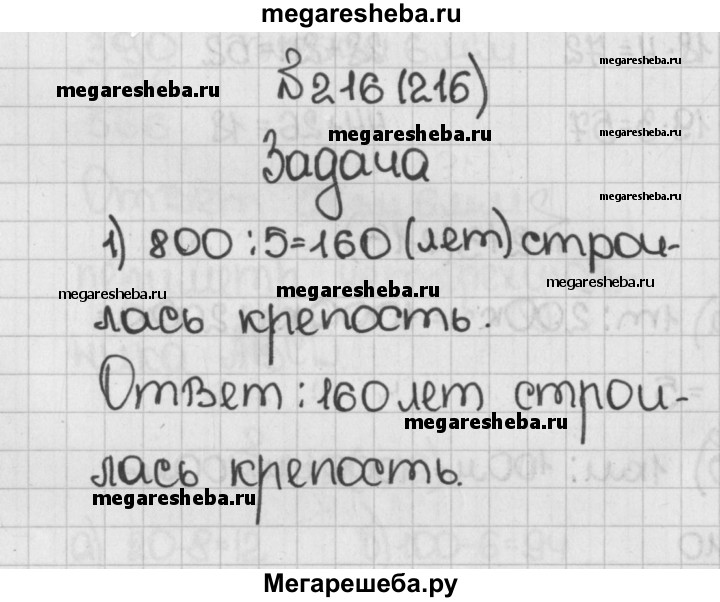 megaresheba.ru
№216 (216)
megaresheba.ru
megaresheba.ru
Задача
megaresheba.ru
1) 800:5=160 (лет) строи-
megaresheba.ru
megaresheba.ru
megaresheba.ru
лась крепость.
Ответ: 160 лет строи-
megaresheba.ru
лась крепость.
megaresheba.ru
Мегарешеба.ру